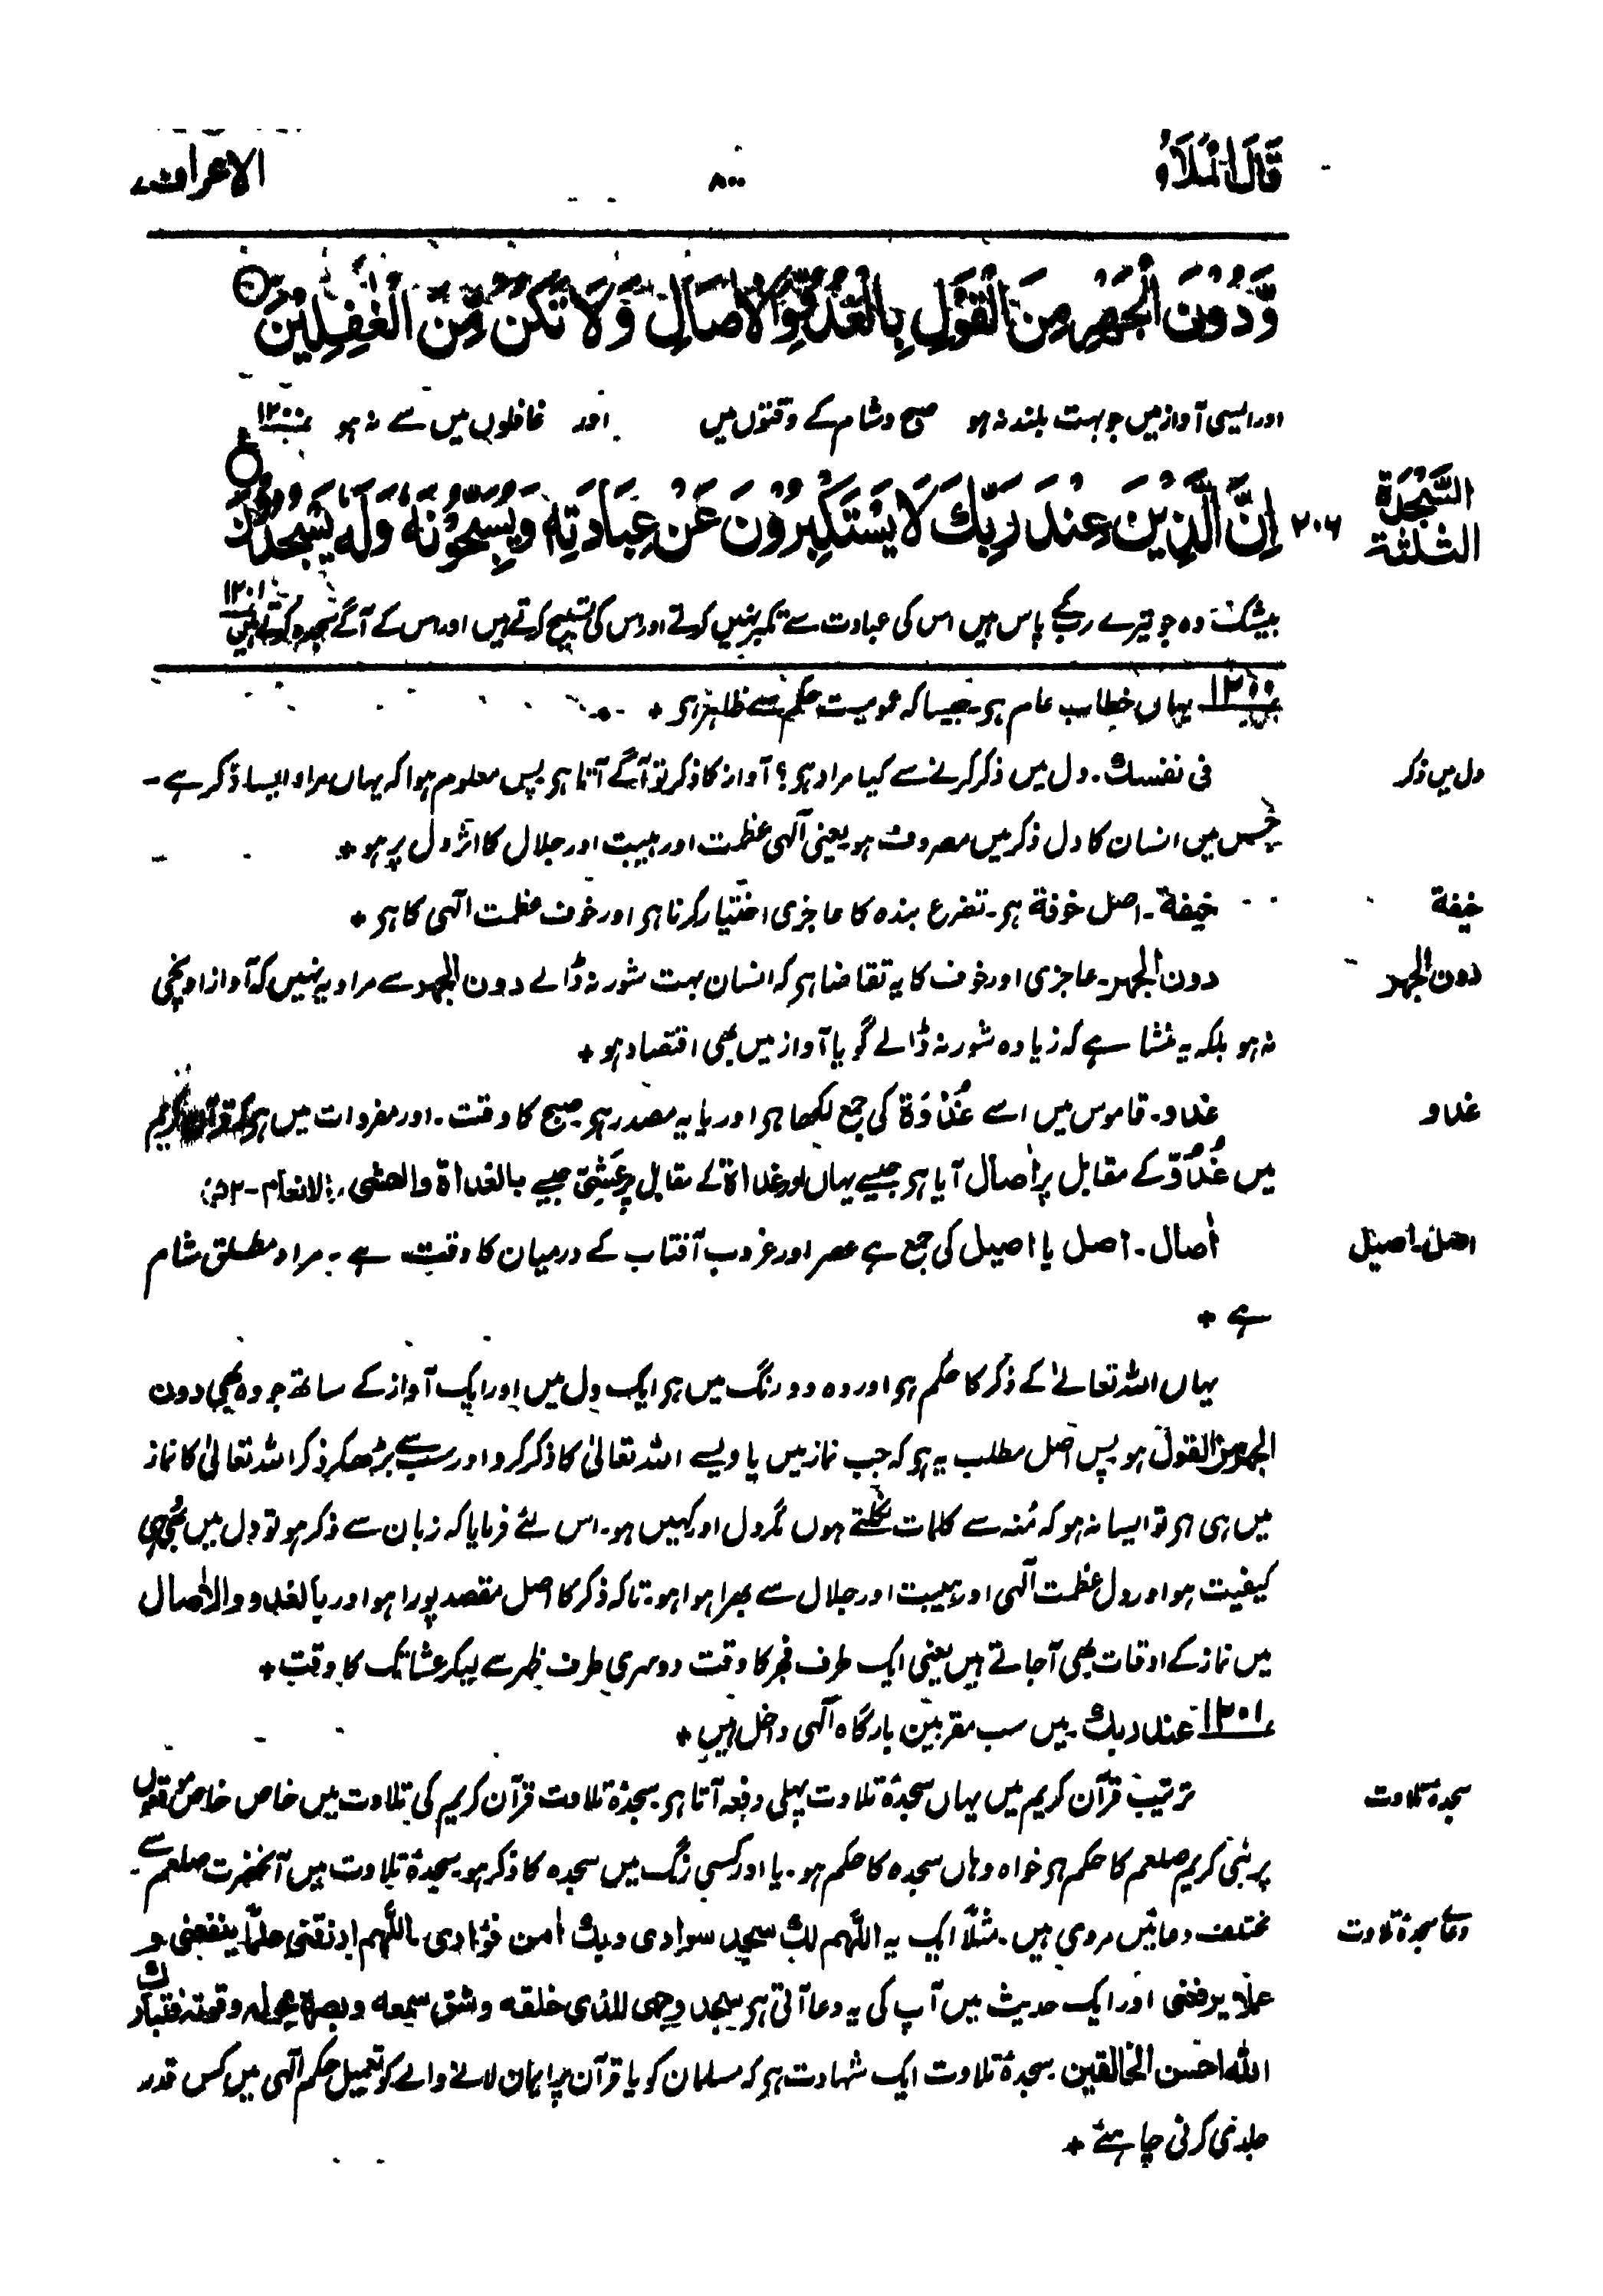 قَالَ الْمَلَاُ ۹
۸۰۰
الاعراف ۷
وَّدُوْنَ الْجَهْرِ مِنَ الْقَوْلِ بِالْغُدُوِّ وَالْاٰصَالِ وَلَا تَكُنْ مِّنَ الْغٰفِلِيْنَ
اور ایسی آواز میں جو بہت بلند نہ ہو صبح و شام کے وقتوں میں اور غافلوں میں سے نہ ہو ۱۲۰۰
السَّجْدَة الثلثة
۲۰۶ اِنَّ الَّذِيْنَ عِنْدَ رَبِّكَ لَا يَسْتَكْبِرُوْنَ عَنْ عِبَادَتِهٖ وَيُسَبِّحُوْنَهٗ وَلَهٗ يَسْجُدُوْنَ
بیشک وہ جو تیرے رب کے پاس ہیں اس کی عبادت سے تکبر نہیں کرتے اور اس کی تسبیح کرتے ہیں اور اس کے آگے سجدہ کرتے ہیں ۱۲۰۱
۱۲۰۰ یہاں خطاب عام ہو۔ جیسا کہ عمومیت حکم سے ظاہر ہو +
دل میں ذکر
فی نفسك۔ دل میں ذکر کرنے سے کیا مراد ہو؟ آواز کا ذکر تو آگے آتا ہو پس معلوم ہوا کہ یہاں مراد ایسا ذکر ہے
جس میں انسان کا دل ذکر میں مصروف ہو یعنی آلٰہی عظمت اور ہیبت اور جلال کا اثر دل پر ہو +
خیفة
خیفة۔ اصل خوفة ہو۔ تضرع بندہ کا عاجزی اختیار کرنا ہو اور خوف عظمت الٰہی کا ہو +
دون الجهر
دون الجهر۔ عاجزی اور خوف کا یہ تقاضا ہو کہ انسان بہت شور نہ ڈالے دون الجهر سے مراد یہ نہیں کہ آواز اونچی
نہ ہو بلکہ یہ منشا ہے کہ زیادہ شور نہ ڈالے گویا آواز میں بھی اقتصاد ہو +
غدو
غدو۔ قاموس میں اسے غُدْوَة کی جمع لکھا ہو اور یا یہ مصدر ہو صبح کا وقت۔ اور مفردات میں ہو کہ قرآن کریم
میں غُدُوّ کے مقابل پر اٰصال آیا ہو جیسے یہاں اور غداة کے مقابل پر عَشِیّ جیسے بالغداة والعشی (الانعام-۵۲)
اصل۔ اصیل
اٰصال۔ اصل یا اصیل کی جمع ہے عصر اور غروب آفتاب کے درمیان کا وقت ہے۔ مراد مطلق شام
ہے +
یہاں اللہ تعالیٰ کے ذکر کا حکم ہو اور وہ دو رنگ میں ہو ایک دل میں اور ایک آواز کے ساتھ جو وہ بھی دون
الجهر من القول ہو پس اصل مطلب یہ ہو کہ جب نماز میں یا ویسے اللہ تعالیٰ کا ذکر کرو اور سب سے بڑھکر ذکر اللہ تعالیٰ کا نماز
میں ہی ہو تو ایسا نہ ہو کہ مُنہ سے کلمات نکلتے ہوں مگر دل اور کہیں ہو۔ اس لئے فرمایا کہ زبان سے ذکر ہو تو دل میں بھی وہی
کیفیت ہو اور دل عظمت آلٰہی اور ہیبت اور جلال سے بھرا ہوا ہو۔ تاکہ ذکر کا اصل مقصد پورا ہو اور بالغدو والاٰصال
میں نماز کے اوقات بھی آجاتے ہیں یعنی ایک طرف فجر کا وقت دوسری طرف ظہر سے لیکر عشا تک کا وقت +
۱۲۰۱ عند ربك۔ میں سب مقربین بارگاہ الٰہی داخل ہیں +
سجدہٴ تلاوت
ترتیب قرآن کریم میں یہاں سجدہٴ تلاوت پہلی دفعہ آتا ہو۔ سجدہٴ تلاوت قرآن کریم کی تلاوت میں خاص خاص موقعوں
پر نبی کریم صلعم کا حکم ہو خواہ وہاں سجدہ کا حکم ہو۔ یا اور کسی رنگ میں سجدہ کا ذکر ہو۔ سجدہٴ تلاوت میں آنحضرت صلعم سے
دعائے سجدہٴ تلاوت
مختلف دعائیں مروی ہیں۔ مثلاً ایک یہ اللّٰهم لك سجد سوادی وبك اٰمن فؤادی اللّٰهم ارزقنی علماً ینفعنی و
عملاً یرفعنی اور ایک حدیث میں آپ کی یہ دعا آتی ہو سجد وجهی للذی خلقه وشق سمعه وبصره بحوله وقوته فتبارك
الله احسن الخالقین۔ سجدہٴ تلاوت ایک شہادت ہو کہ مسلمان کو یا قرآن پر ایمان لانے والے کو تعمیل حکم الٰہی میں کس قدر
جلدی کرنی چاہئے +